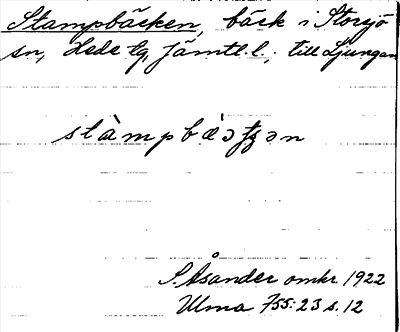 Stampbäcken, bäck i Storsjö
sn, Hede tg, Jämtl. l., till Ljungan
S. Åsander omkr. 1922
Ulma 755:23 s. 12